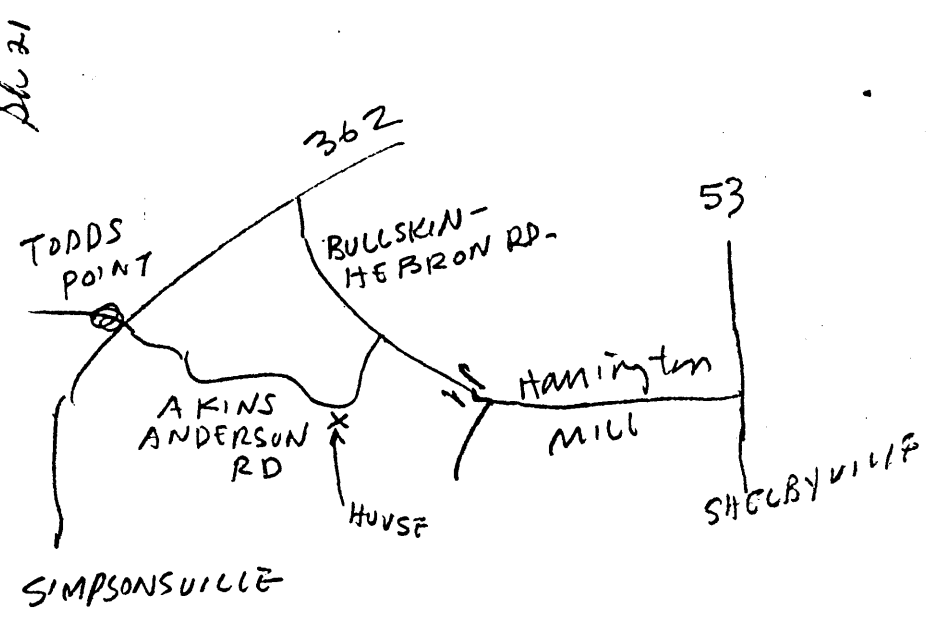 Sh 21
362
53
TODDS
POINT
BULLSKIN-
HEBRON RD-
Harrington
MILL
AKINS
ANDERSON
RD
HOUSE
SHELBYVILLE
SIMPSONSVILLE